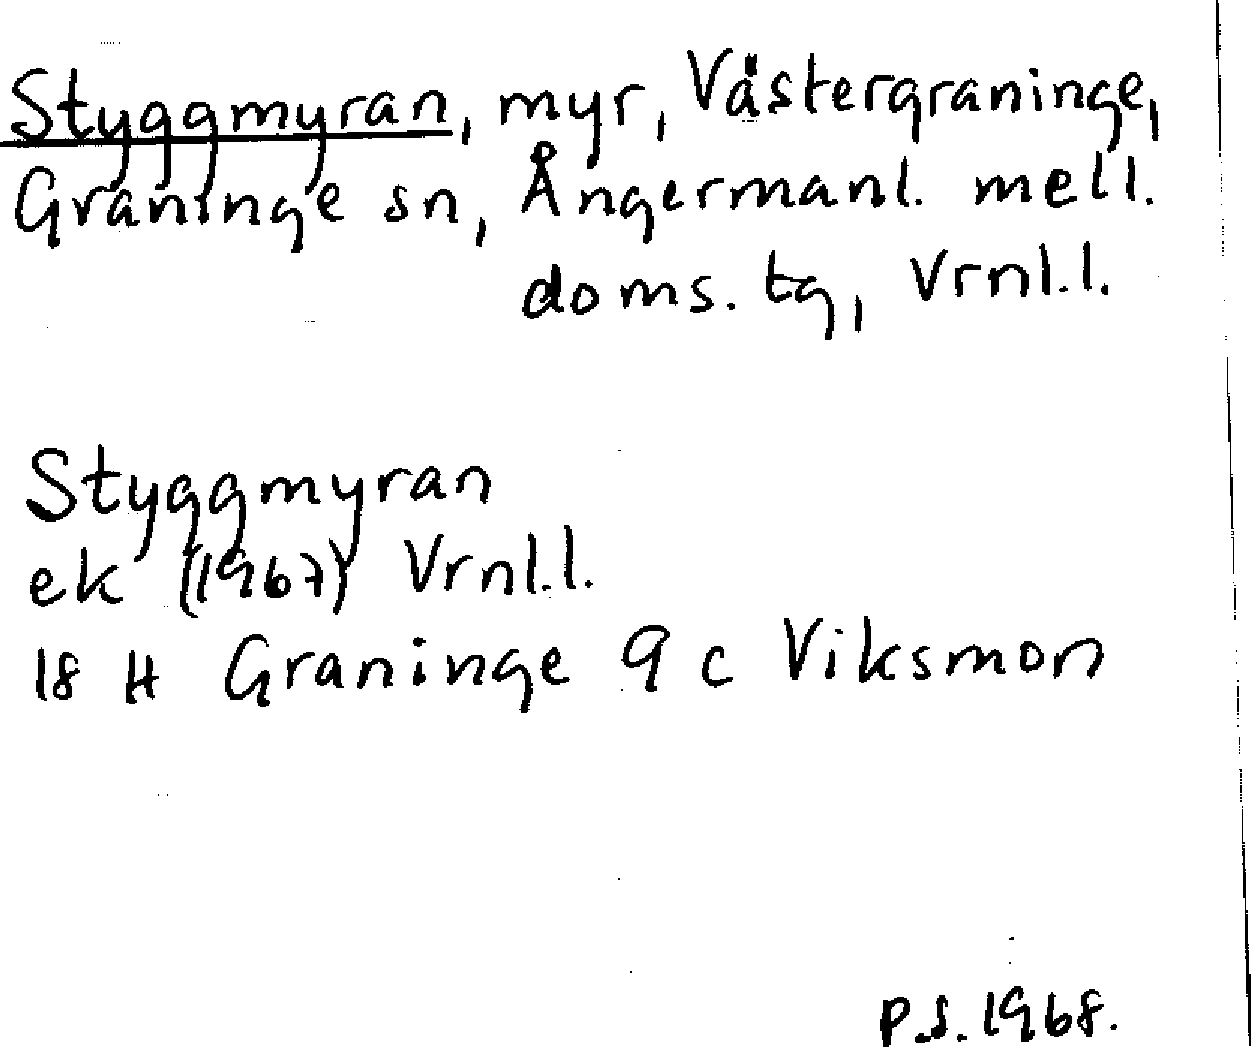 Styggmyran, myr, Västergraninge,
Graninge sn, Ångermanl. mell.
doms. tg, Vrnl.l.
Styggmyran
ek (1967) Vrnl.l.
18 H Graninge 9 c Viksmon
P.S. 1968.